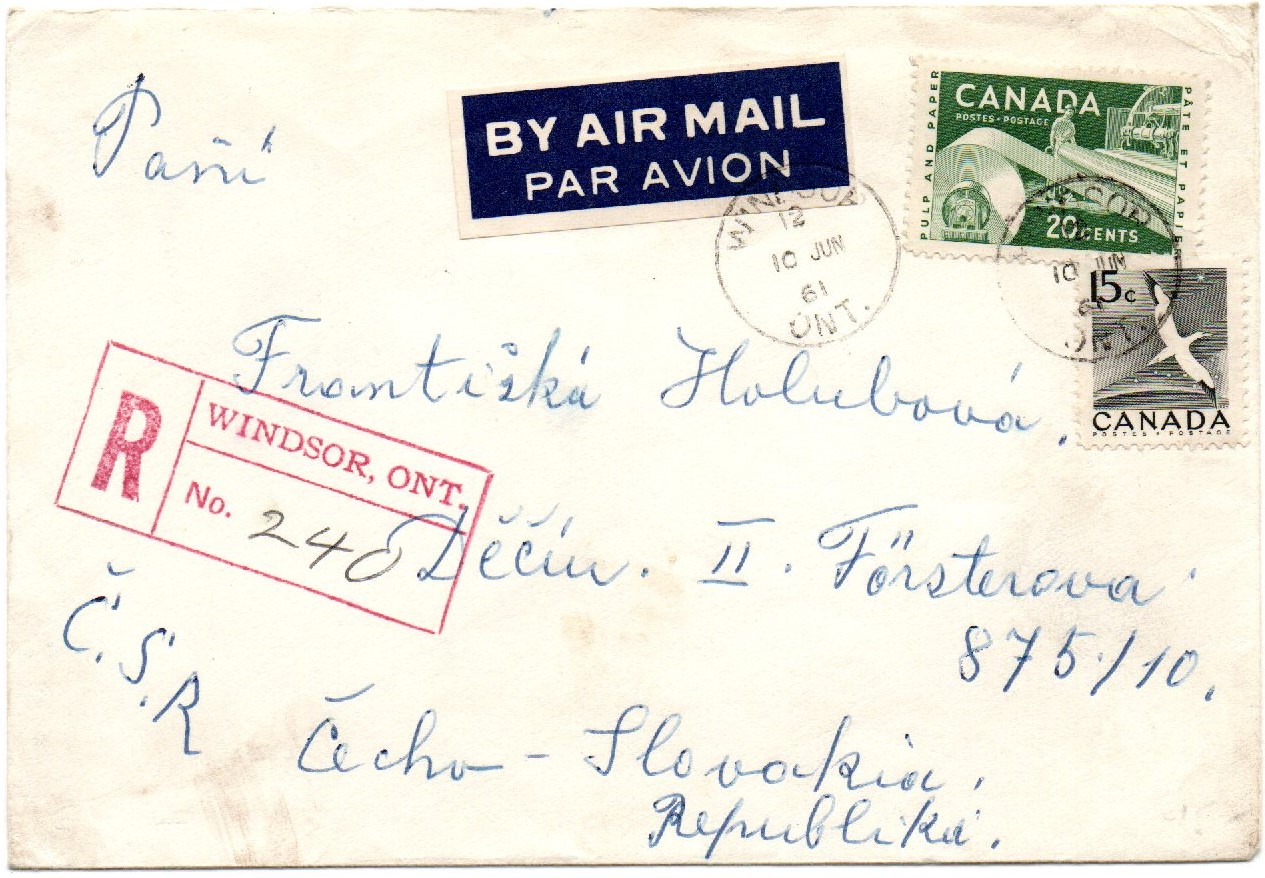 Paní
BY AIR MAIL
PAR AVION
CANADA
POSTES - POSTAGE
PULP AND PAPER
PÂTE ET PAPIER
20 CENTS
WINDSOR
12
10 JUN
61
ONT.
10 JUN
61
ONT.
15c
CANADA
POSTES - POSTAGE
Františká Holubová.
R
WINDSOR, ONT.
No. 240
Děčín. II. Försterova
875/10.
Č.S.R
Čecho-Slovakia.
Republiká.